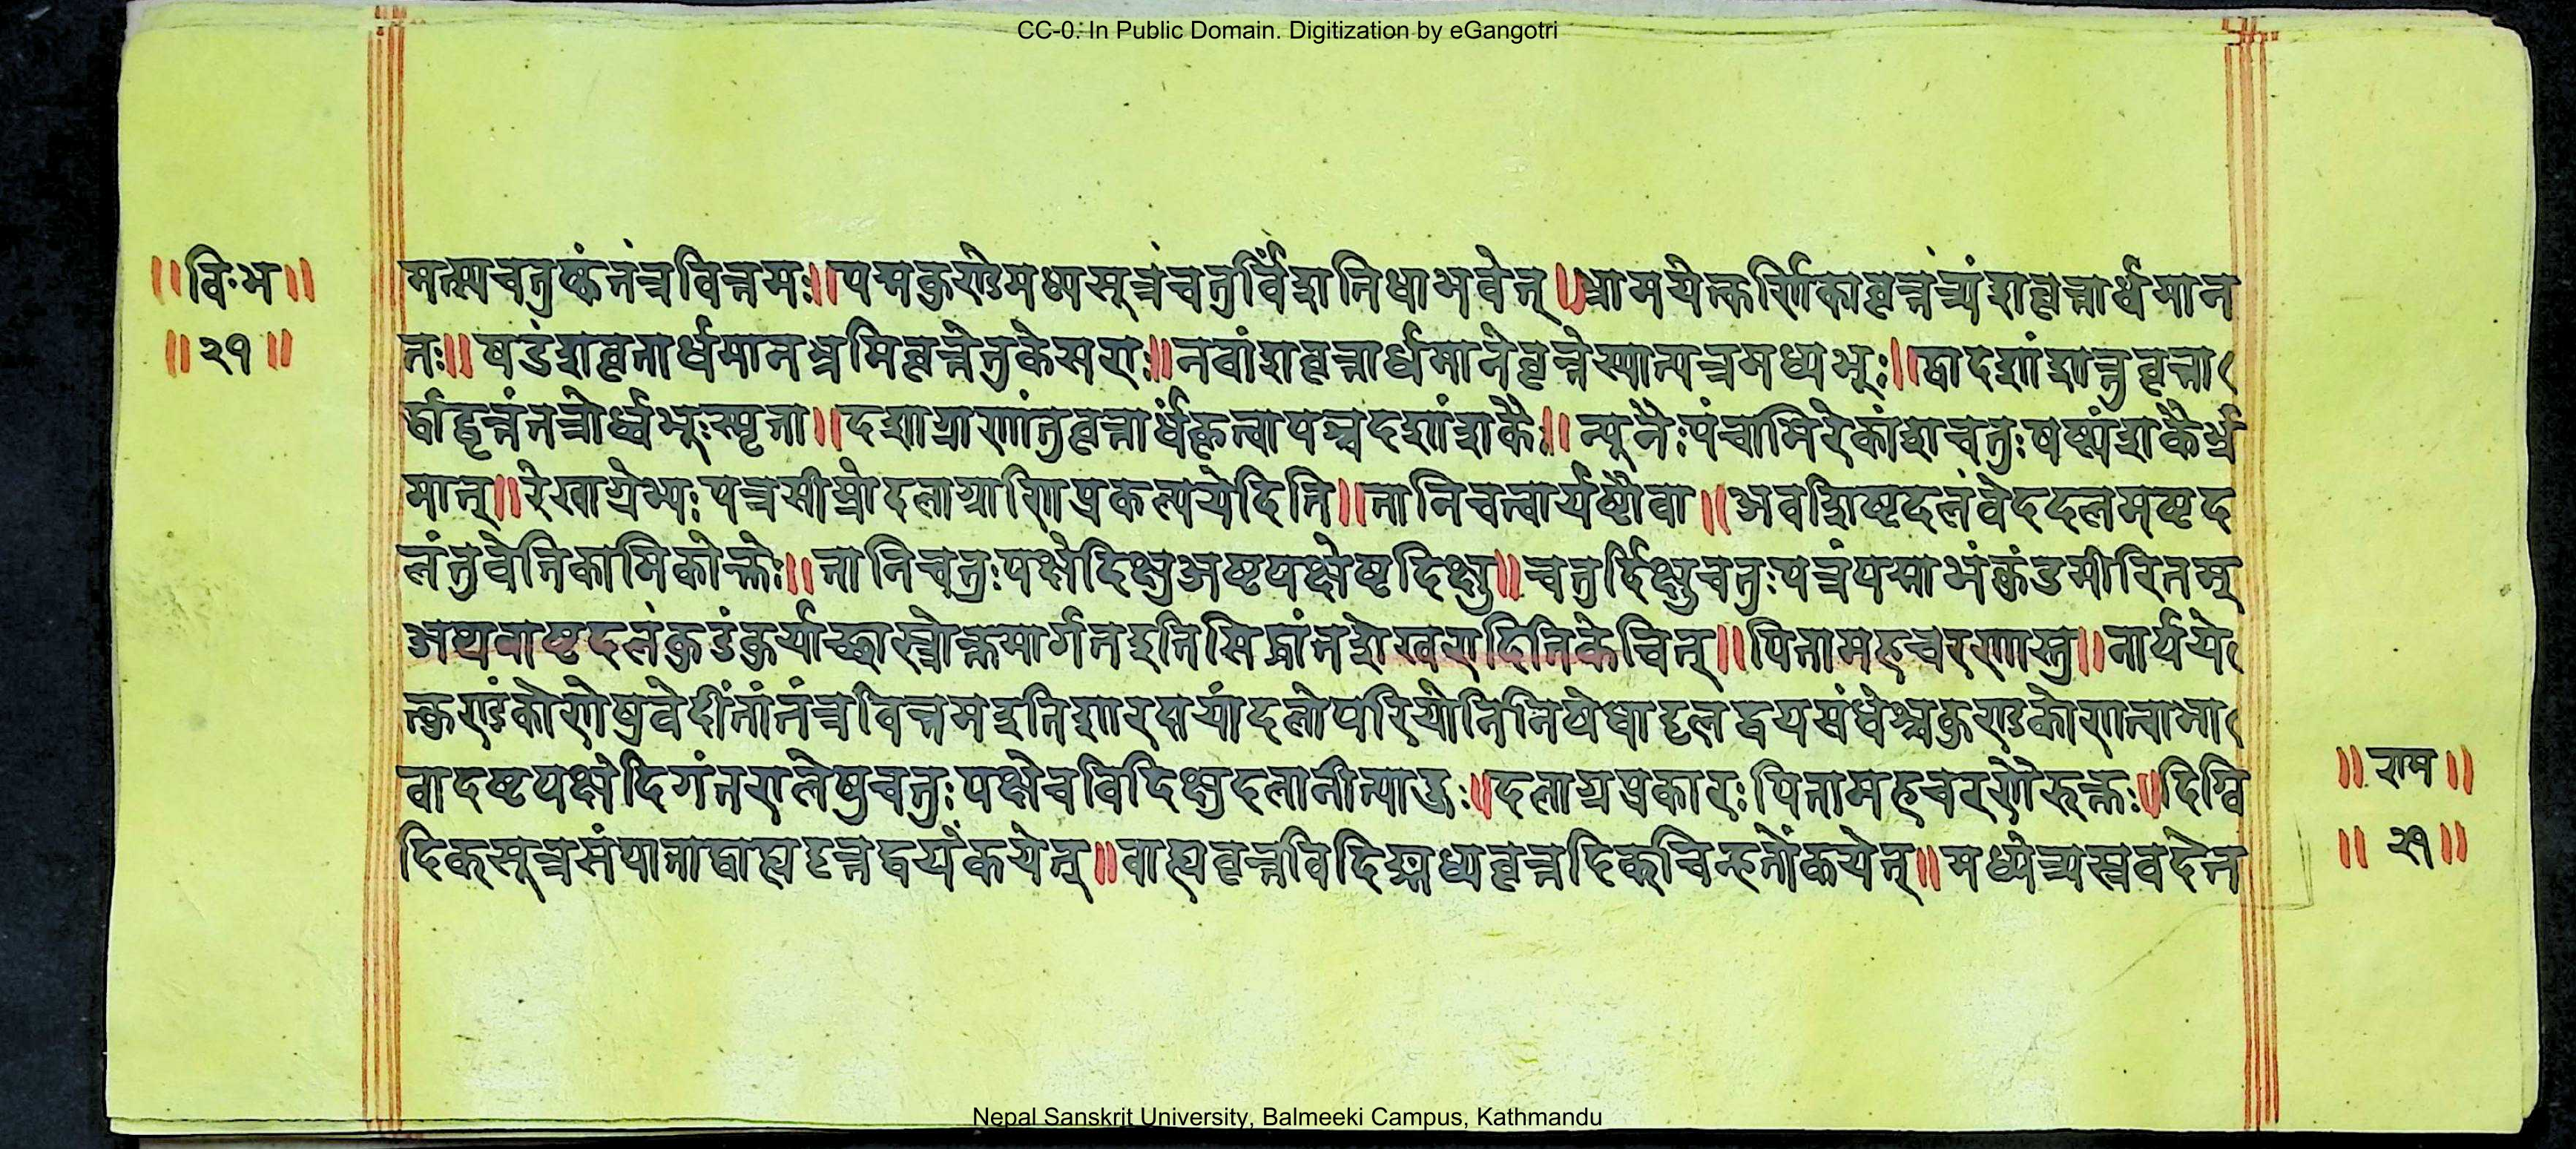 CC-0. In Public Domain. Digitization by eGangotri
॥वि॰भ॥ मत्स्यचतुष्कंतंत्रवित्तमः॥पद्मकुण्डेमध्यसूत्रंचतुर्विंशतिधाभवेत्॥भ्रामयेत्कर्णिकावृत्तंत्र्यंशवृत्तार्धमान
॥२१॥ तः॥षडंशवृत्तार्धमानभ्रमिवृत्तेतुकेसराः॥नवांशवृत्तार्धमानेवृत्तेस्यात्पत्रमध्यभूः॥द्वादशांशात्तुवृत्ता
र्द्धाद्वृत्तंतत्रोर्ध्वभूःस्मृता॥दशाग्राणांतुवृत्तार्धंकृत्वापञ्चदशांशकैः॥न्यूनैःपंचामिरेकांशचतुःषष्ट्यंशकैर्भ्र
मात्॥रेखाग्रेभ्यःपत्रसीम्नोदलाग्राणिप्रकल्पयेदिति॥तानिचत्वार्यष्टौवा॥अवशिष्टदलंवेददलमष्टद
लंतुवेतिकामिकोक्तेः॥तानिचतुःपक्षेदिक्षुअष्टपक्षेष्टदिक्षु॥चतुर्दिक्षुचतुःपत्रंपद्माभंकुंडमीरितम्
अथवाष्टदलंकुडंकुर्याच्छास्त्रोक्तमार्गतइतिसिद्धांतशेखरादितिकेचित्॥पितामहचरणास्तु॥नार्पये
त्कुण्डंकोणेषुवेदींतांतंत्रवित्तमइतिशारदायांदलोपरियोनिनिषेधाद्दलद्वयसंधेश्चकुण्डकोणत्वाभा
वादष्टपक्षेदिगंतरालेषुचतुःपक्षेचविदिक्षुदलानीत्याहुः॥दलाग्रप्रकारःपितामहचरणैरुक्तः॥दिग्वि
॥राम॥
दिक्सूत्रसंपाताद्बाह्यवृत्तद्वयेंकयेत्॥बाह्यवृत्तविदिङ्मध्यवृत्तदिक्चिन्हतोंकयेत्॥मध्येत्र्यस्रवदेत
॥२१॥
Nepal Sanskrit University, Balmeeki Campus, Kathmandu